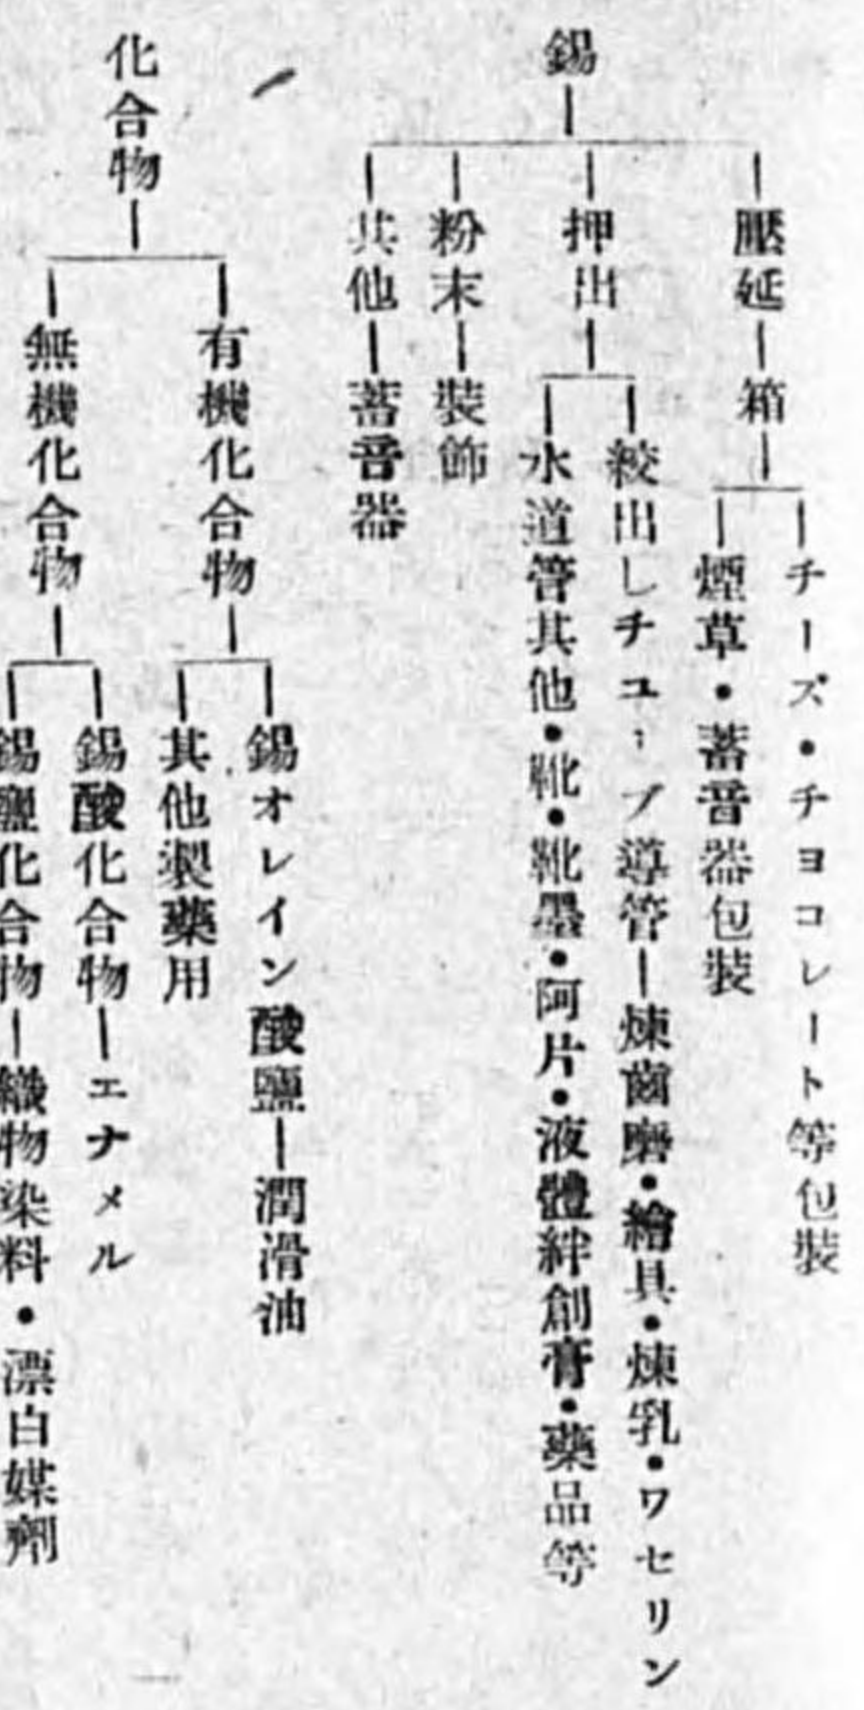 錫
壓延
箱
チーズ・チヨコレート等包裝
煙草・蓄音器包裝
押出
絞出しチューブ導管
煉齒磨・繪具・煉乳・ワセリン
水道管其他・靴・靴墨・阿片・液體絆創膏・藥品等
粉末
裝飾
其他
蓄音器
化合物
有機化合物
錫オレイン酸鹽
潤滑油
其他製藥用
無機化合物
錫酸化合物
エナメル
錫鹽化合物
織物染料・漂白媒劑